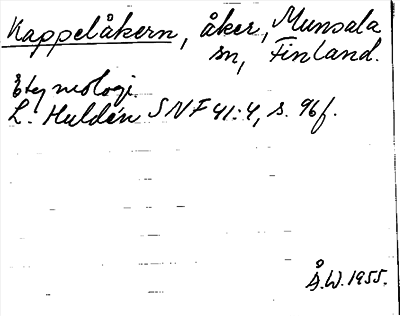 Kappelåkern, åker, Munsala
sn, Finland.
Etymologi.
L. Huldén SNF 41:4, s. 96f.
Å.W. 1955.